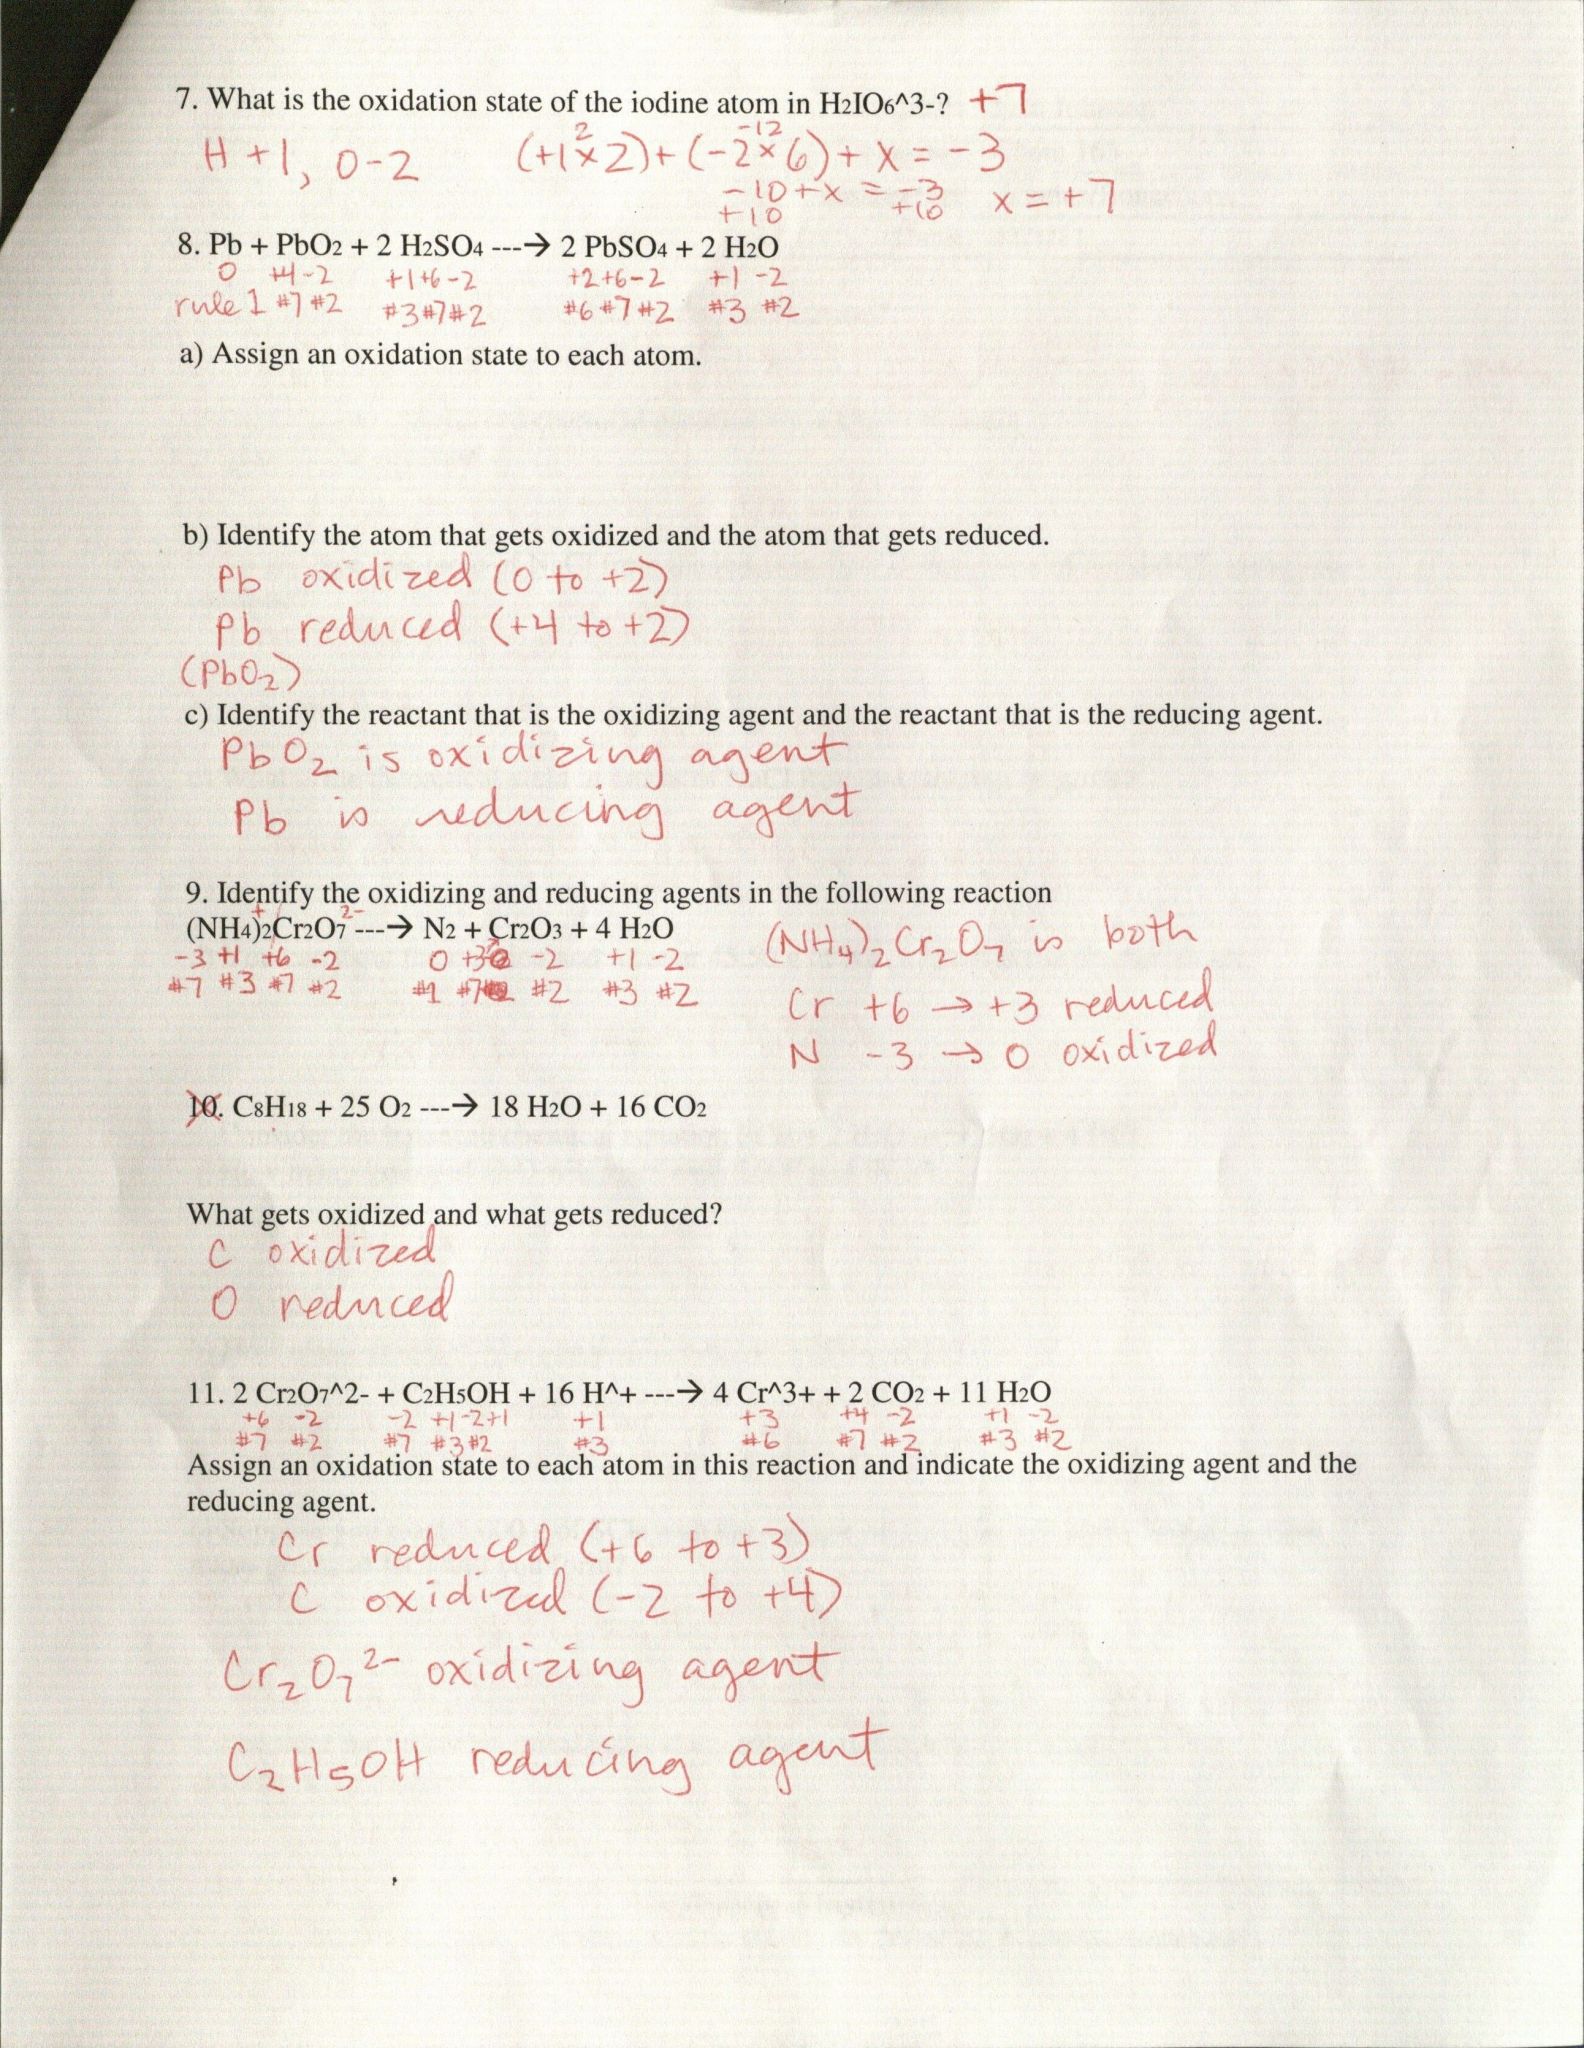 7. What is the oxidation state of the iodine atom in H2IO6^3-? +7
2 -12
H +1, O-2 (+1×2)+(-2×6)+x=-3
-10+x = -3 x=+7
+10 +10
8. Pb + PbO2 + 2 H2SO4 ---→ 2 PbSO4 + 2 H2O
0 +4-2 +1+6-2 +2+6-2 +1-2
rule 1 #7 #2 #3#7#2 #6#7#2 #3 #2
a) Assign an oxidation state to each atom.
b) Identify the atom that gets oxidized and the atom that gets reduced.
Pb oxidized (0 to +2)
Pb reduced (+4 to +2)
(PbO2)
c) Identify the reactant that is the oxidizing agent and the reactant that is the reducing agent.
PbO2 is oxidizing agent
Pb is reducing agent
9. Identify the oxidizing and reducing agents in the following reaction
+ 2-
(NH4)2Cr2O7 ---→ N2 + Cr2O3 + 4 H2O (NH4)2Cr2O7 is both
-3 +1 +6 -2 0 +3 -2 +1 -2
#7 #3 #7 #2 #1 #7 #2 #3 #2 Cr +6 → +3 reduced
N -3 → 0 oxidized
10. C8H18 + 25 O2 ---→ 18 H2O + 16 CO2
What gets oxidized and what gets reduced?
C oxidized
O reduced
11. 2 Cr2O7^2- + C2H5OH + 16 H^+ ---→ 4 Cr^3+ + 2 CO2 + 11 H2O
+6 -2 -2 +1-2+1 +1 +3 +4 -2 +1 -2
#7 #2 #7 #3#2 #3 #6 #7 #2 #3 #2
Assign an oxidation state to each atom in this reaction and indicate the oxidizing agent and the
reducing agent.
Cr reduced (+6 to +3)
C oxidized (-2 to +4)
Cr2O7 2- oxidizing agent
C2H5OH reducing agent